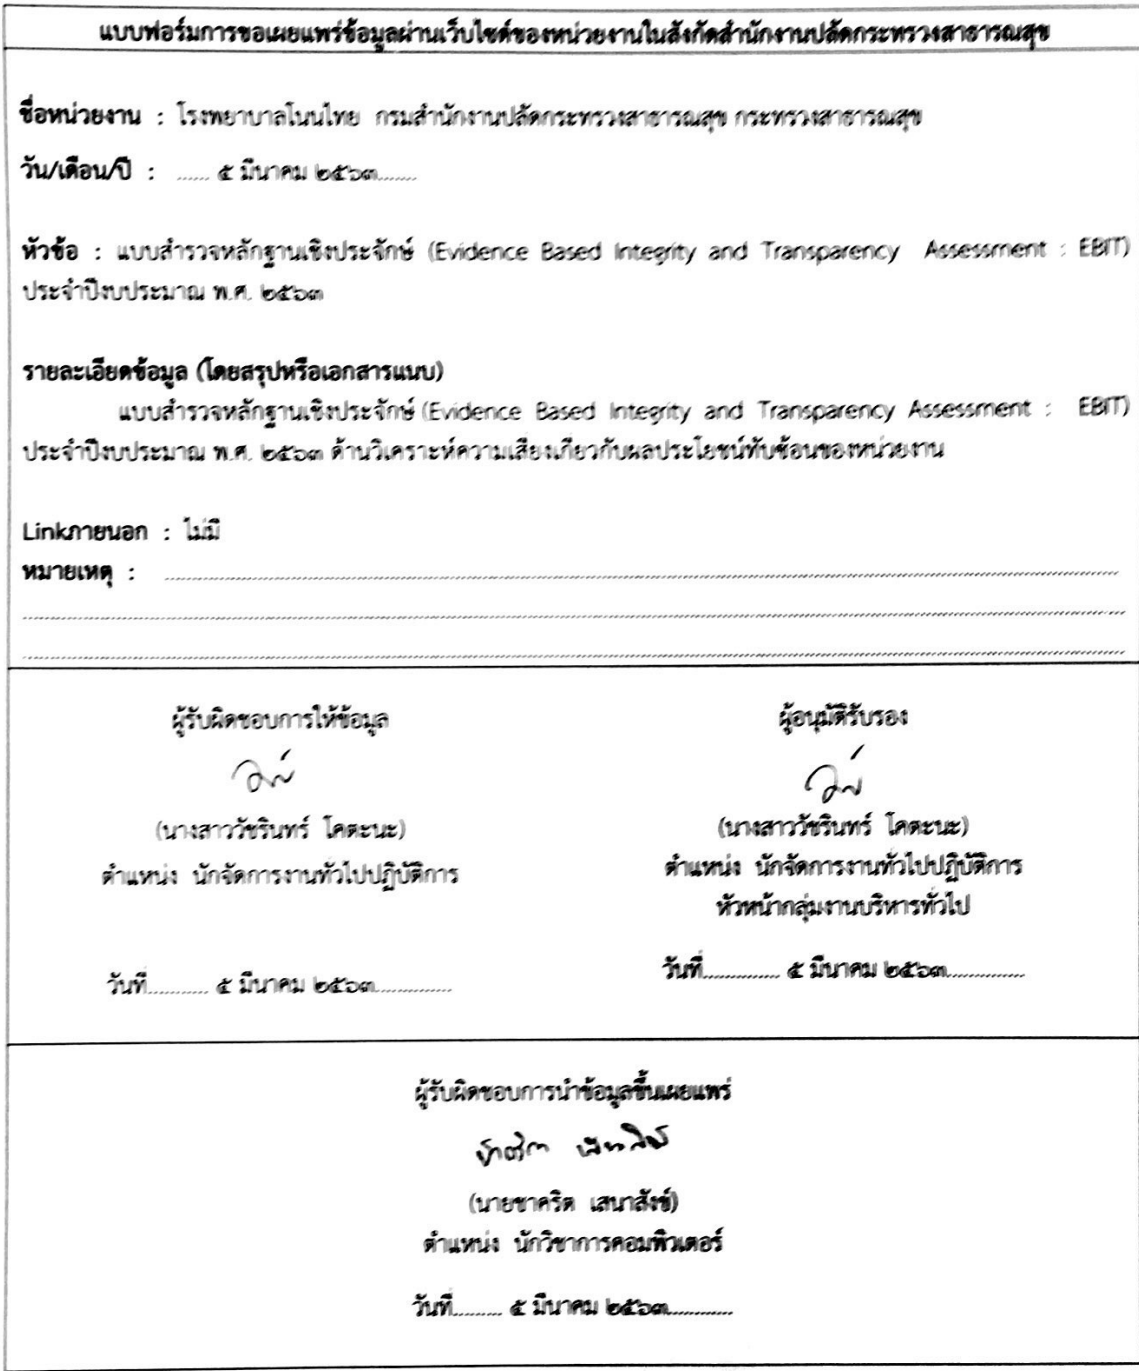 แบบฟอร์มการขอเผยแพร่ข้อมูลผ่านเว็บไซต์ของหน่วยงานในสังกัดสำนักงานปลัดกระทรวงสาธารณสุข
ชื่อหน่วยงาน : โรงพยาบาลโนนไทย กรมสำนักงานปลัดกระทรวงสาธารณสุข กระทรวงสาธารณสุข
วัน/เดือน/ปี : ...... ๕ มีนาคม ๒๕๖๓.......
หัวข้อ : แบบสำรวจหลักฐานเชิงประจักษ์ (Evidence Based Integrity and Transparency Assessment : EBIT)
ประจำปีงบประมาณ พ.ศ. ๒๕๖๓
รายละเอียดข้อมูล (โดยสรุปหรือเอกสารแนบ)
แบบสำรวจหลักฐานเชิงประจักษ์ (Evidence Based Integrity and Transparency Assessment : EBIT)
ประจำปีงบประมาณ พ.ศ. ๒๕๖๓ ด้านวิเคราะห์ความเสี่ยงเกี่ยวกับผลประโยชน์ทับซ้อนของหน่วยงาน
Linkภายนอก : ไม่มี
หมายเหตุ :
ผู้รับผิดชอบการให้ข้อมูล
(นางสาววัชรินทร์ โคตะนะ)
ตำแหน่ง นักจัดการงานทั่วไปปฏิบัติการ
วันที่........... ๕ มีนาคม ๒๕๖๓..............
ผู้อนุมัติรับรอง
(นางสาววัชรินทร์ โคตะนะ)
ตำแหน่ง นักจัดการงานทั่วไปปฏิบัติการ
หัวหน้ากลุ่มงานบริหารทั่วไป
วันที่.............. ๕ มีนาคม ๒๕๖๓..............
ผู้รับผิดชอบการนำข้อมูลขึ้นเผยแพร่
(นายชาคริต เสนาสังข์)
ตำแหน่ง นักวิชาการคอมพิวเตอร์
วันที่......... ๕ มีนาคม ๒๕๖๓............